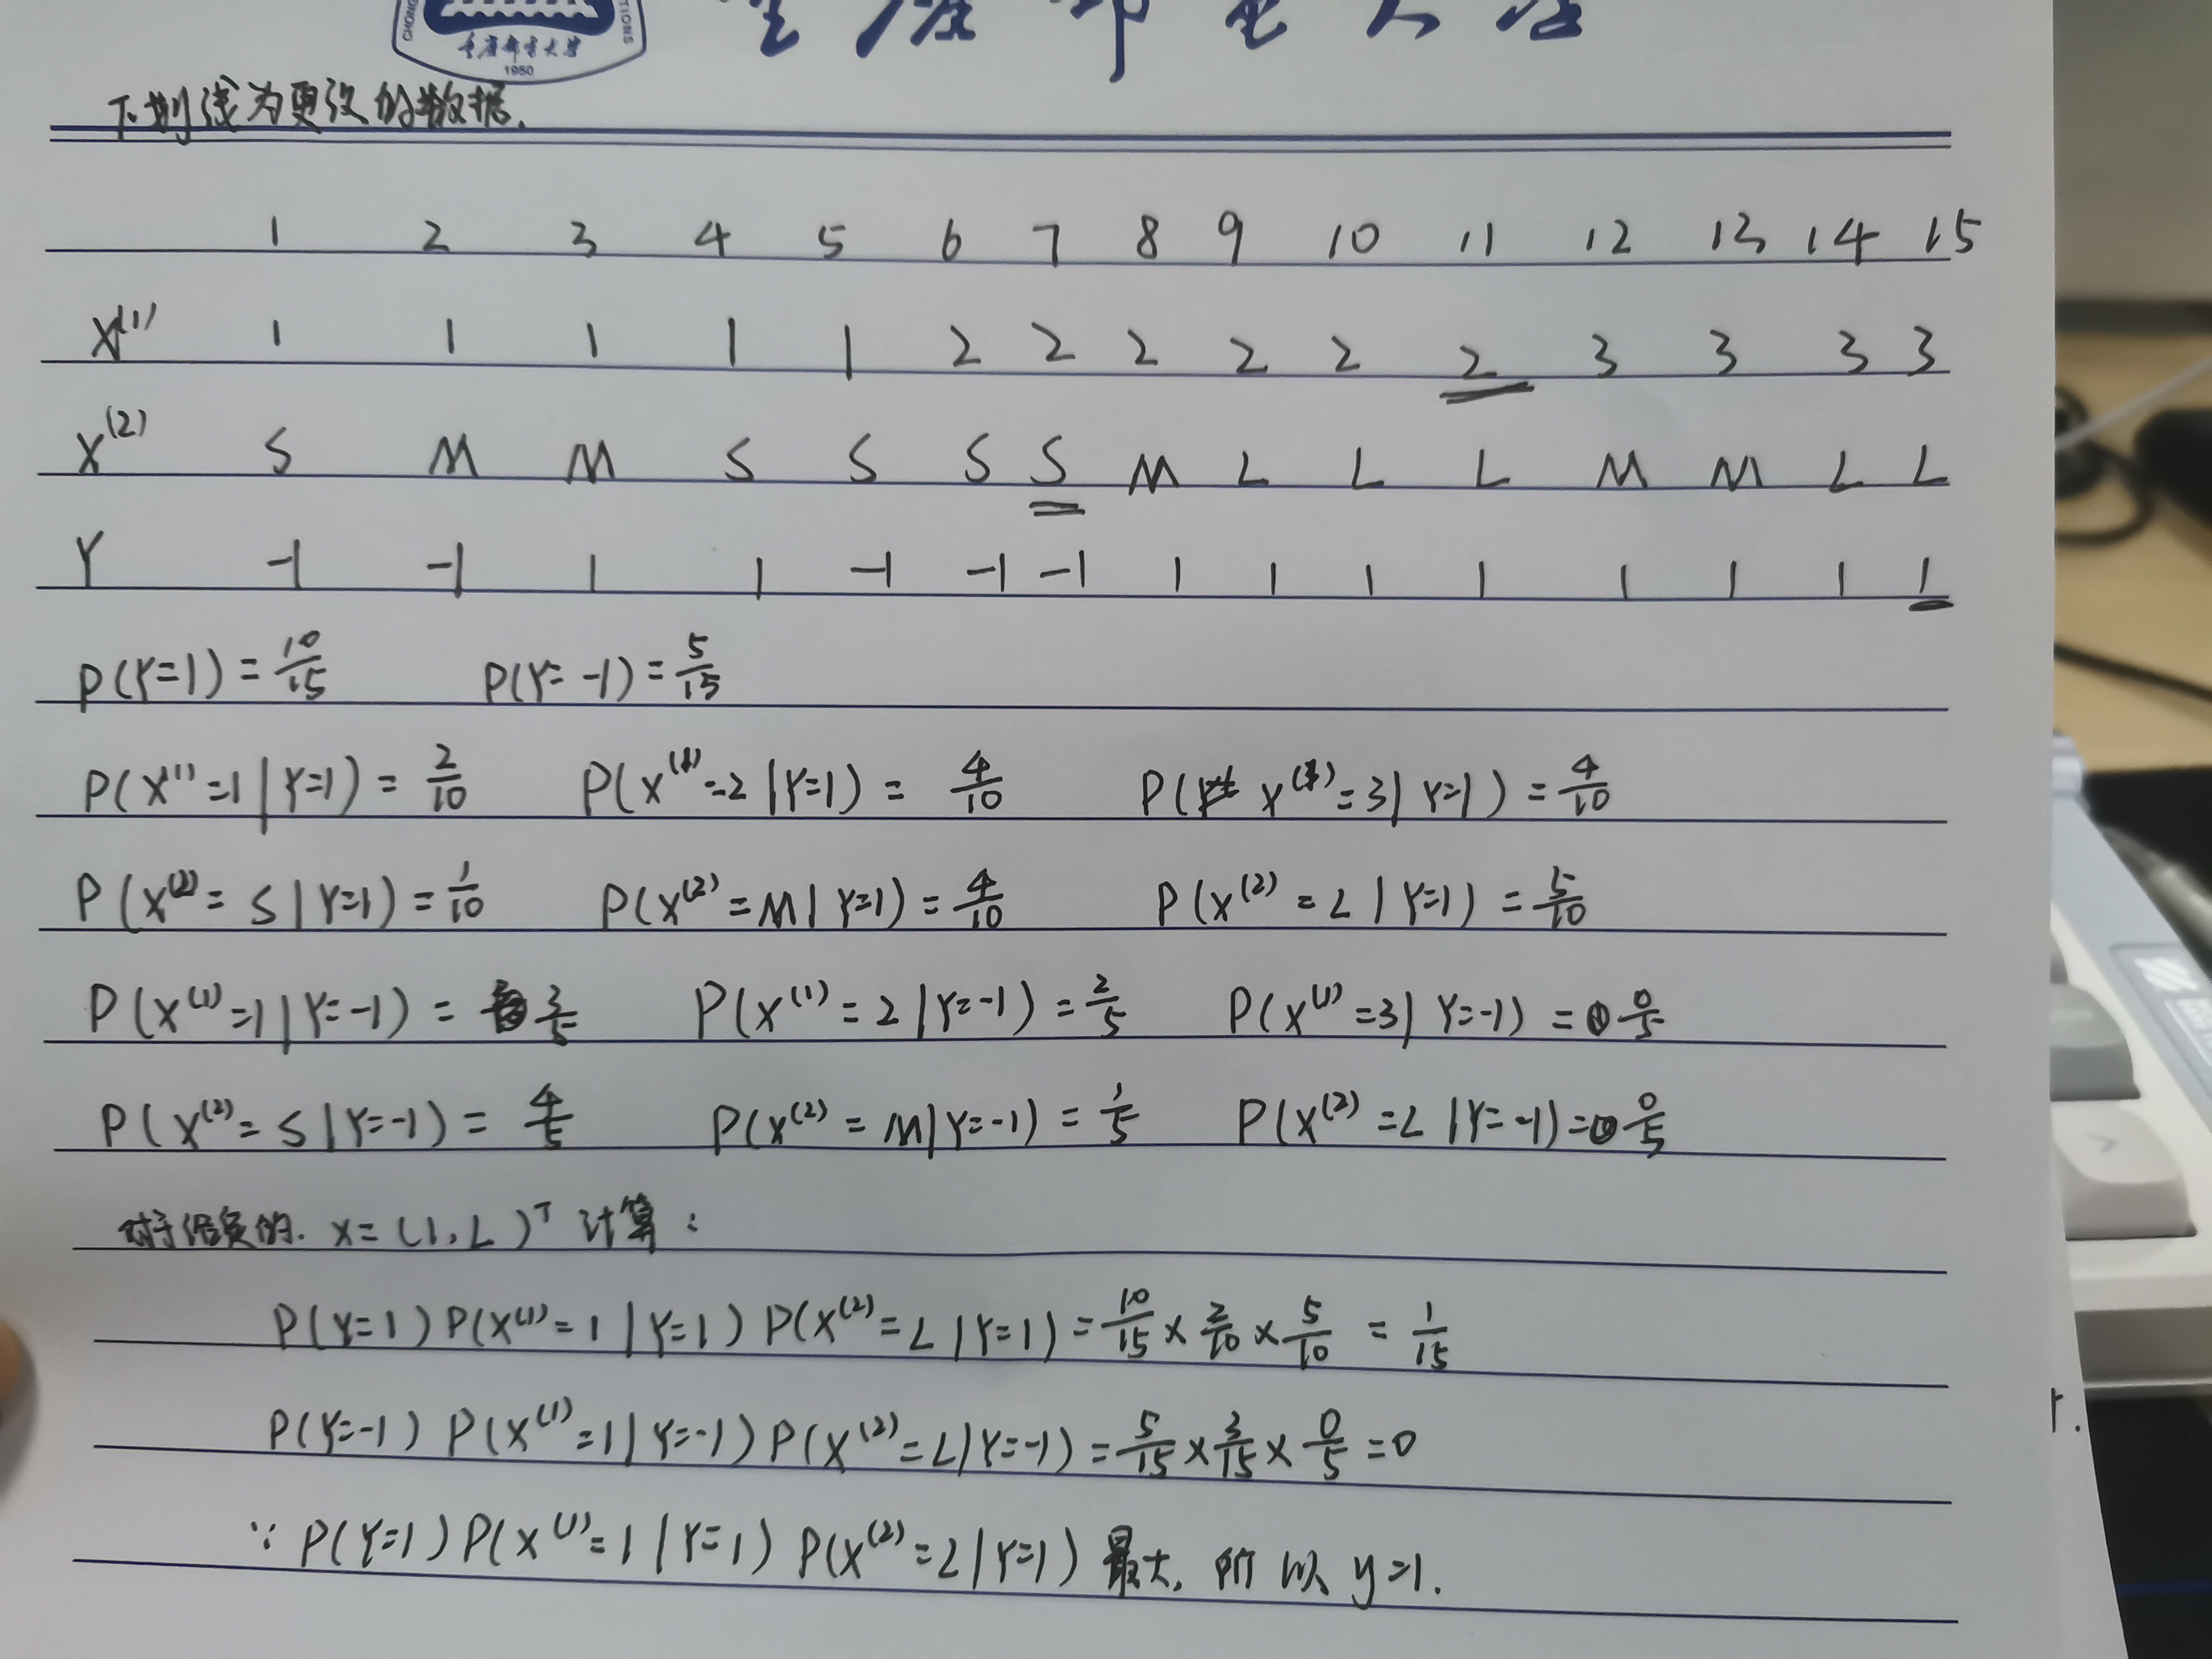 重庆邮电大学
1950
下划线为更改的数据.
1 2 3 4 5 6 7 8 9 10 11 12 13 14 15
X⁽¹⁾ 1 1 1 1 1 2 2 2 2 2 2 3 3 3 3
X⁽²⁾ S M M S S S S M L L L M M L L
Y -1 -1 1 1 -1 -1 -1 1 1 1 1 1 1 1 1
P(Y=1)=10/15 P(Y=-1)=5/15
P(X⁽¹⁾=1|Y=1)=2/10 P(X⁽¹⁾=2|Y=1)=4/10 P(X⁽¹⁾=3|Y=1)=4/10
P(X⁽²⁾=S|Y=1)=1/10 P(X⁽²⁾=M|Y=1)=4/10 P(X⁽²⁾=L|Y=1)=5/10
P(X⁽¹⁾=1|Y=-1)=3/5 P(X⁽¹⁾=2|Y=-1)=2/5 P(X⁽¹⁾=3|Y=-1)=0/5
P(X⁽²⁾=S|Y=-1)=4/5 P(X⁽²⁾=M|Y=-1)=1/5 P(X⁽²⁾=L|Y=-1)=0/5
对于给定的. x=(1,L)ᵀ 计算:
P(Y=1)P(X⁽¹⁾=1|Y=1)P(X⁽²⁾=L|Y=1)=10/15×2/10×5/10=1/15
P(Y=-1)P(X⁽¹⁾=1|Y=-1)P(X⁽²⁾=L|Y=-1)=5/15×3/15×0/5=0
∵P(Y=1)P(X⁽¹⁾=1|Y=1)P(X⁽²⁾=L|Y=1)最大, 所以 y=1.